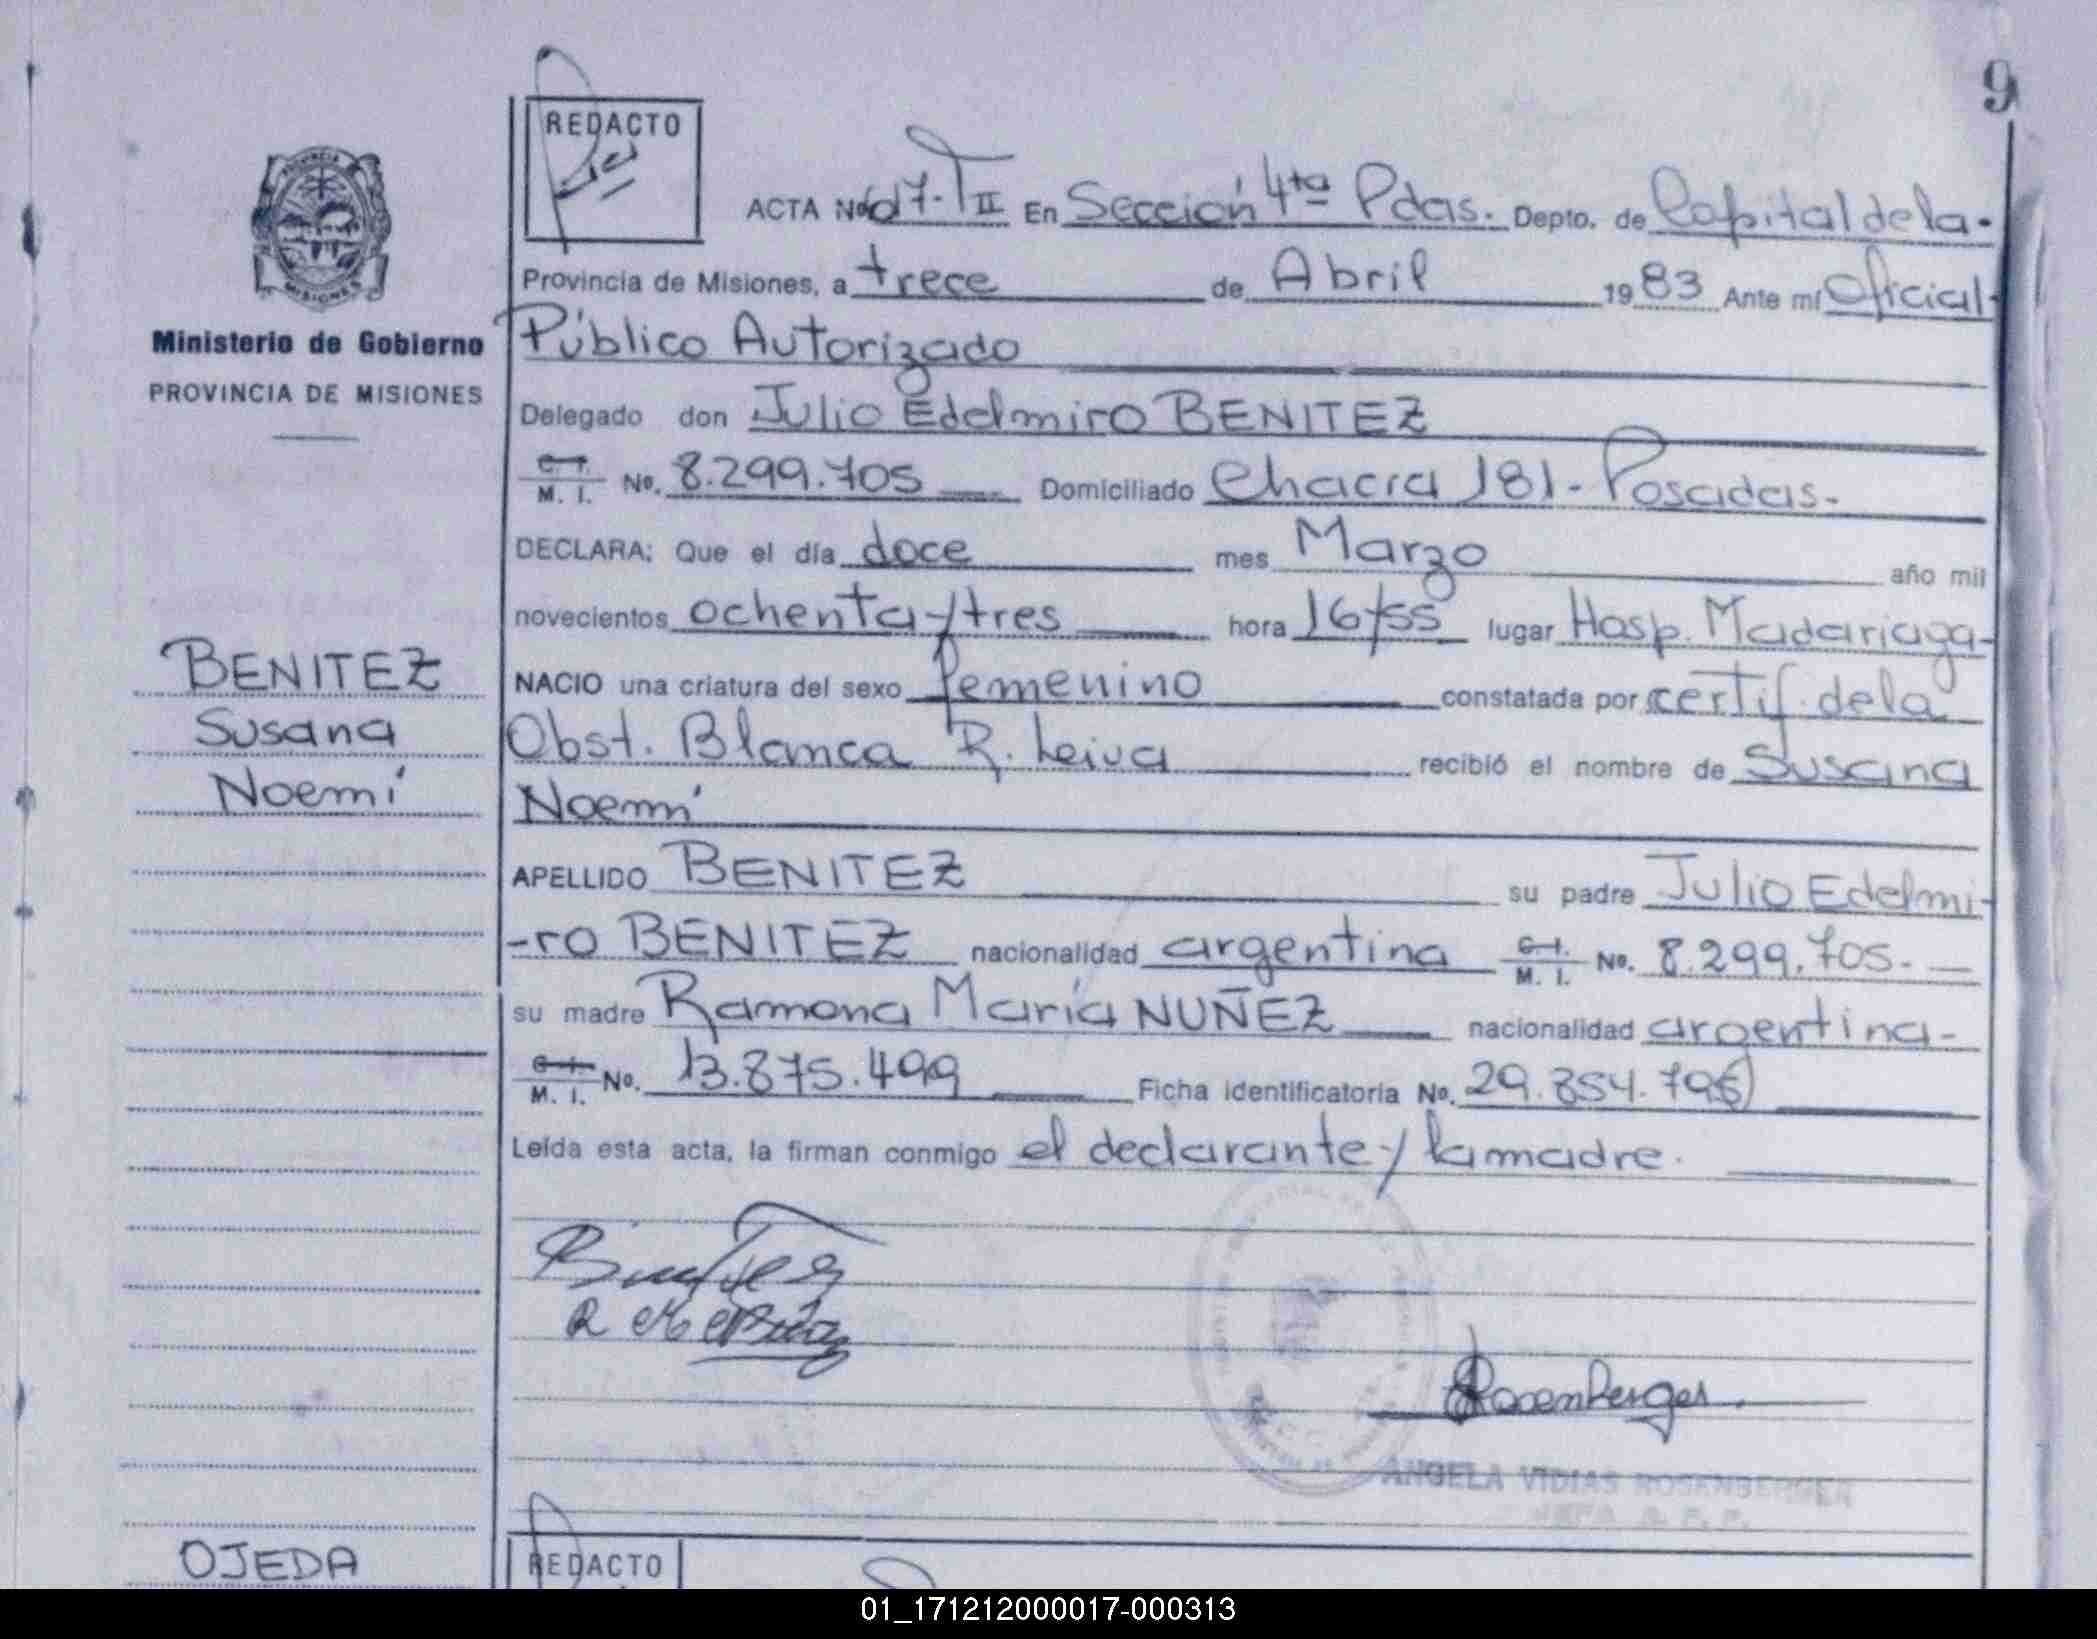 9
REDACTO
ACTA No. 607-T II En Sección 4ta Pdas. Depto. de Capital de la-
Provincia de Misiones, a trece de Abril 1983 Ante mí Oficial
Ministerio de Gobierno
PROVINCIA DE MISIONES
Público Autorizado
Delegado don Julio Edelmiro BENITEZ
C. I. M. I. No. 8.299.705 Domiciliado Chacra 181-Posadas-
DECLARA: Que el día doce mes Marzo año mil
novecientos ochenta y tres hora 16/55 lugar Hosp. Madariaga-
BENITEZ
Susana
Noemí
NACIO una criatura del sexo femenino constatada por certif. de la
Obst. Blanca R. Leiva recibió el nombre de Susana
Noemí
APELLIDO BENITEZ su padre Julio Edelmi-
-ro BENITEZ nacionalidad argentina C. I. M. I. No. 8.299.705.-
su madre Ramona María NUÑEZ nacionalidad argentina-
C. I. M. I. No. 13.875.499 Ficha identificatoria No. 29.854.796
Leída esta acta, la firman conmigo el declarante y la madre.
Benitez
Rosenberger
ANGELA VIDIAS ROSENBERGER
OJEDA
REDACTO
01_171212000017-000313